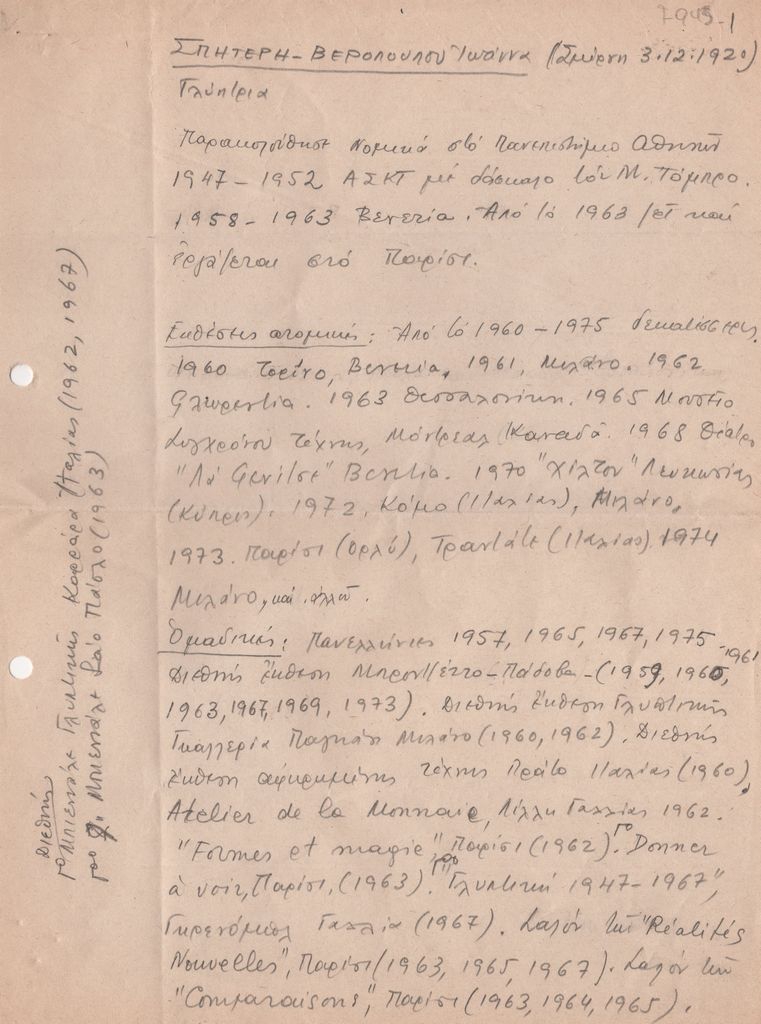 7943-1
ΣΠΗΤΕΡΗ-ΒΕΡΟΠΟΥΛΟΥ Ἰωάννα (Σμύρνη 3.12.1920)
Γλύπτρια
Παρακολούθησε Νομικά στό Πανεπιστήμιο Αθηνῶν
1947-1952 ΑΣΚΤ μέ δάσκαλο τόν Μ. Τόμπρο.
1958-1963 Βενετία. Ἀπό τό 1963 ζεῖ καί
ἐργάζεται στό Παρίσι.
Ἐκθέσεις ατομικές: Ἀπό τό 1960-1975 δεκατέσσερις.
1960 Τορίνο, Βενετία, 1961, Μιλάνο. 1962
Φλωρεντία. 1963 Θεσσαλονίκη. 1965 Μουσεῖο
Συγχρόνου Τέχνης, Μόντρεαλ Καναδᾶ. 1968 Θέατρο
"Λά Φενίτσε" Βενετία. 1970 "Χίλτον" Λευκωσίας
(Κύπρος). 1972, Κόμο (Ἰταλίας), Μιλάνο,
1973. Παρίσι (Ὀρλύ), Τραντάτε (Ἰταλίας). 1974
Μιλάνο, καί ἀλλοῦ.
Ὁμαδικές: Πανελλήνιες 1957, 1965, 1967, 1975
Διεθνής Ἔκθεση Μπρονζέττο-Πάδοβα-(1959, 1960, 1961
1963, 1967, 1969, 1973). Διεθνής Ἔκθεση Γλυπτικῆς
Γκαλλερία Παγκάνι Μιλάνο (1960, 1962). Διεθνής
Ἔκθεση αφηρημένης τέχνης Πράτο Ἰταλίας (1960),
Atelier de la Monnaie, Λίλλη Γαλλίας 1962.
"Formes et magie", Παρίσι (1962). Γο Donner
à voir, Παρίσι, (1963). "Γλυπτική 1947-1967",
Γκρενόμπλ Γαλλία (1967). Σαλόν τῶν "Réalités
Nouvelles", Παρίσι (1963, 1965, 1967). Σαλόν τῶν
"Comparaisons", Παρίσι (1963, 1964, 1965).
Διεθνής
Γο Μπιεννάλε Γλυπτικῆς Καρράρα Ἰταλίας (1962, 1967)
Μπιεννάλε Σάο Πάολο (1963)